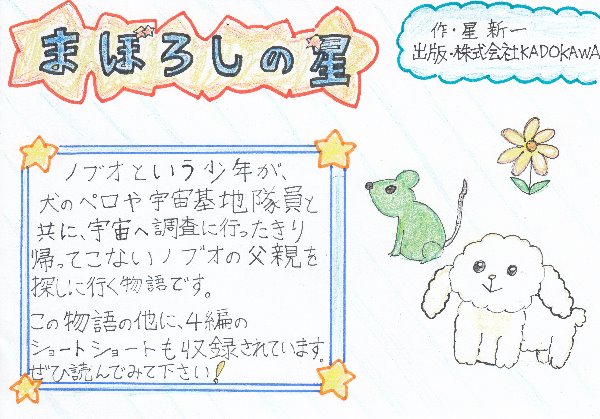 まぼろしの星
作・星 新一
出版・株式会社KADOKAWA
ノブオという少年が、
犬のペロや宇宙基地隊員と
共に、宇宙へ調査に行ったきり
帰ってこないノブオの父親を
探しに行く物語です。
この物語の他に、4編の
ショートショートも収録されています。
ぜひ読んでみて下さい!